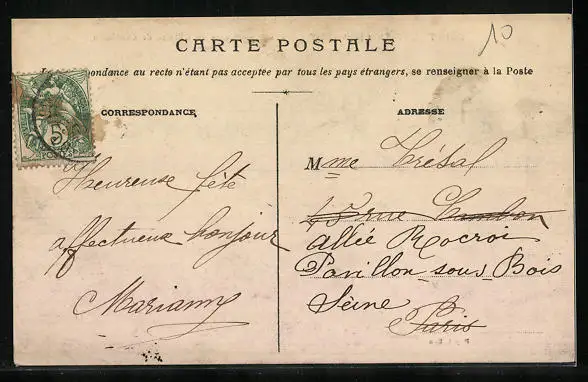 10
CARTE POSTALE
La correspondance au recto n'étant pas acceptée par tous les pays étrangers, se renseigner à la Poste
CORRESPONDANCE
Heureuse fête
affectueux bonjour
Marianne
5c
ADRESSE
Mme Trésal
45 rue Chambon
allée Rocroi
Pavillon sous Bois
Seine
Paris